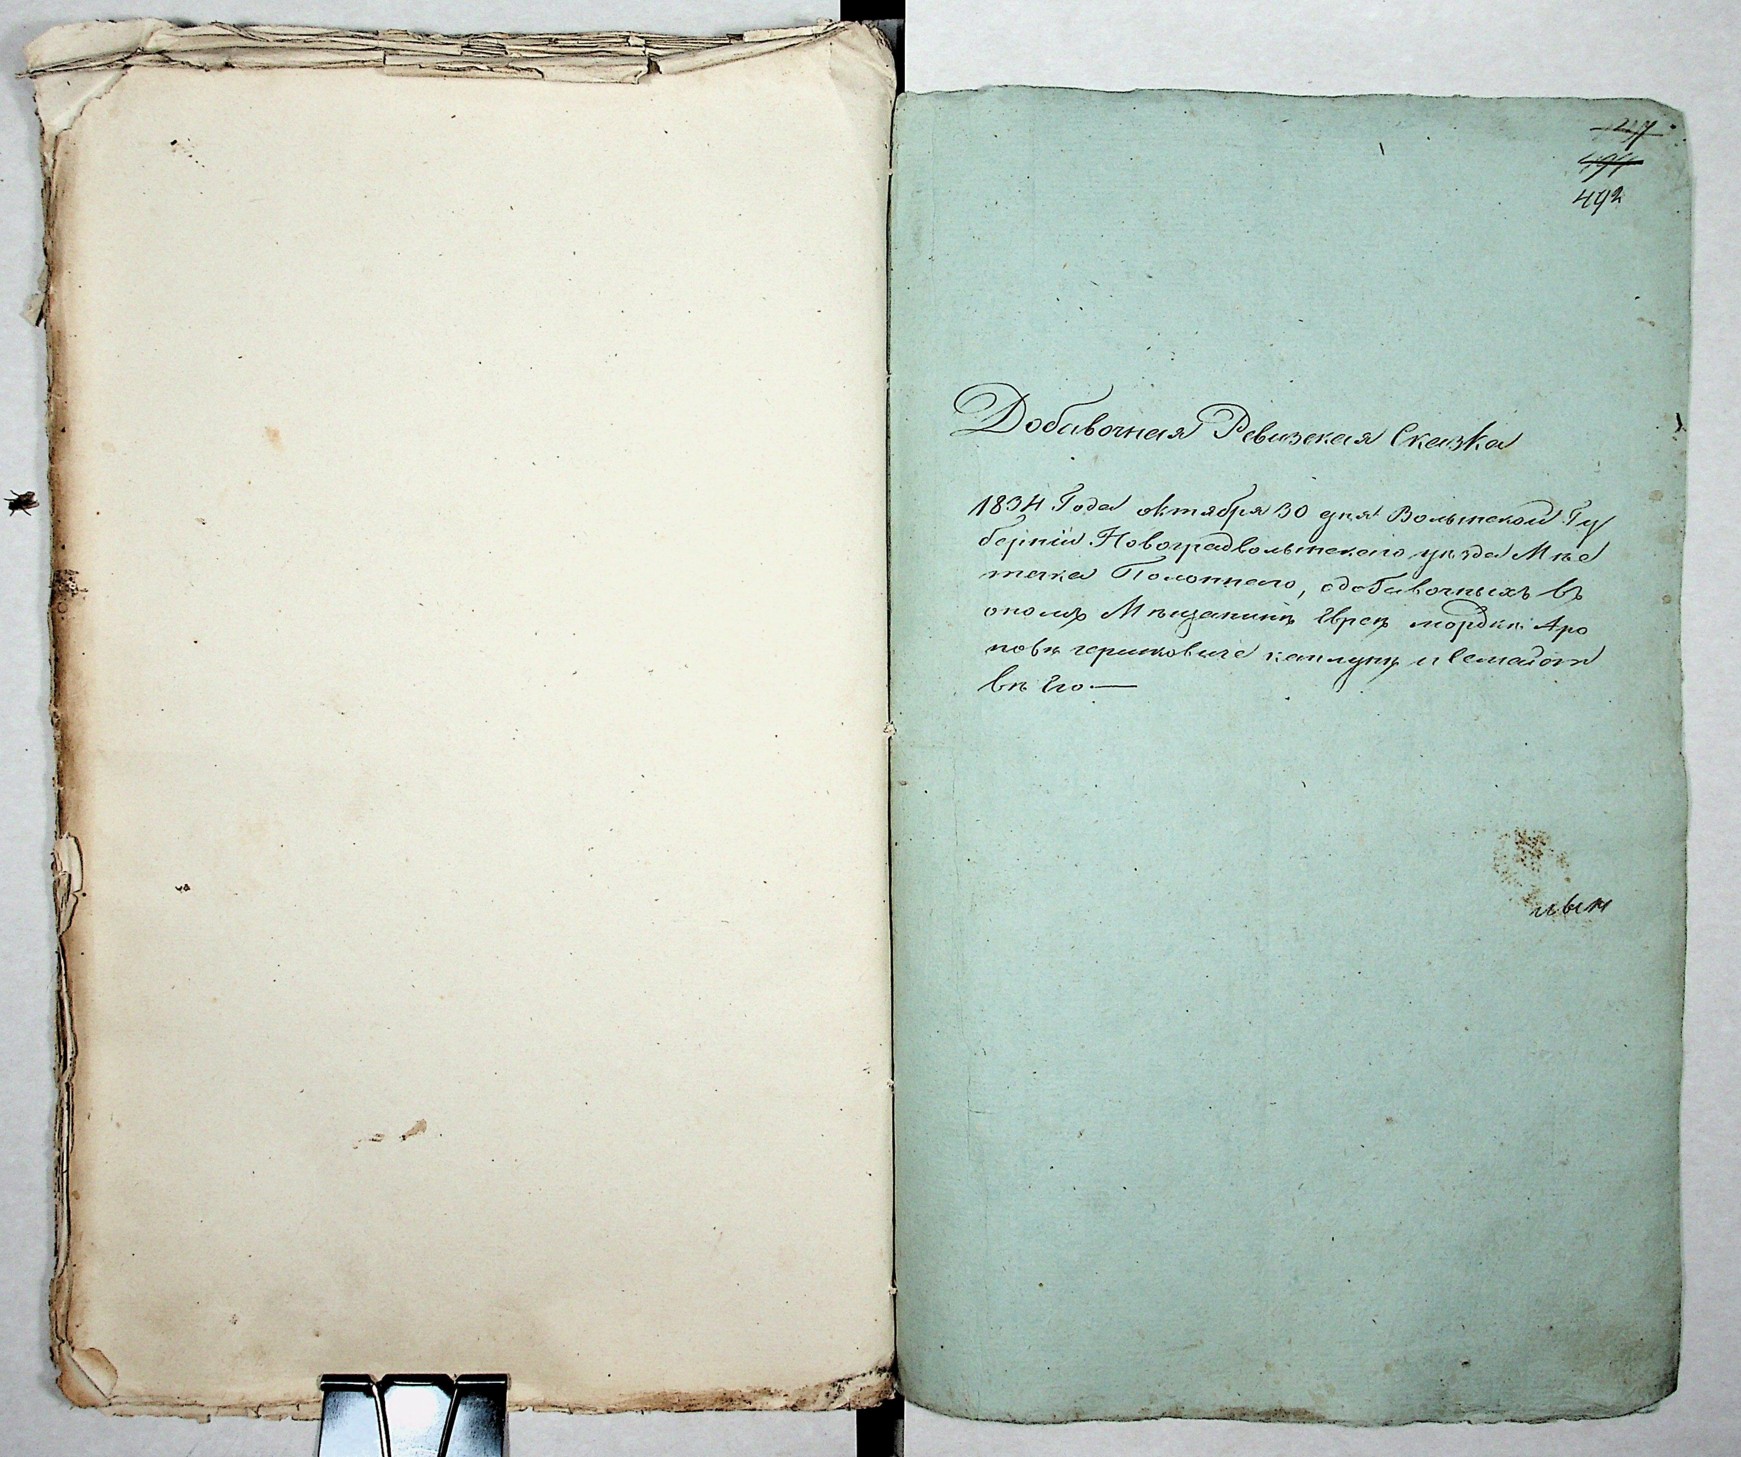 492
Добавочная Ревизская Сказка
1834 Года октября 30 дня Волынской Гу
бернiи Новоградволынскаго уѣзда Мѣс
течка Полонного, одобавочныхъ въ
Мѣщанинѣ Евреѣ мордкѣ Аро
новѣ гершковиче каплунѣ и Семейст
вѣ Его —